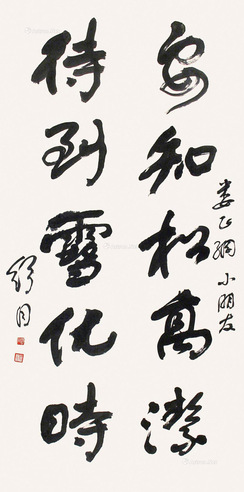 娄正綱小朋友
要知松高潔
待到雪化時
舒同